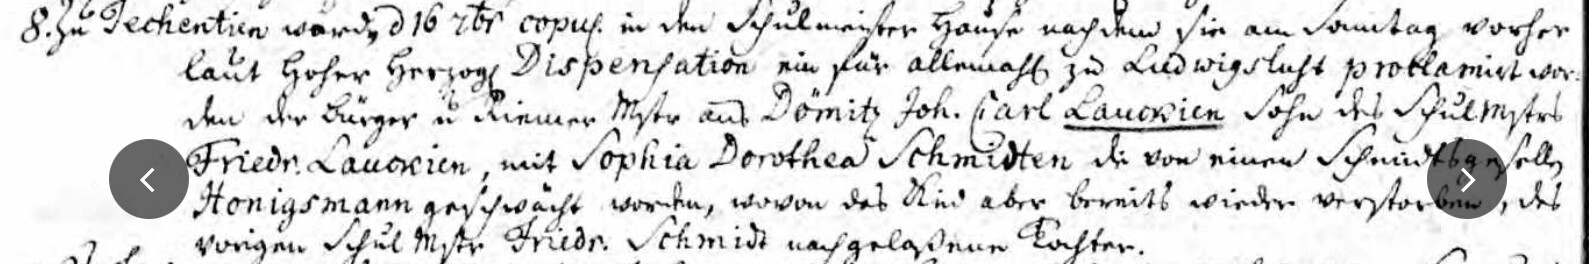 8. Zu Techentien wurdn d 16 7br copul. in den Schulmeister Hause nachdem sie am Sonntag vorher
laut Hoher Herzogl Dispensation ein für allemahl zu Ludwigslust proklamirt wor-
den der Bürger u Riemer Mstr aus Dömitz Joh. Carl Lauckien Sohn des SchulMstrs
Friedr. Lauckien, mit Sophia Dorothea Schmidten die von einen Schmidtsgeselln
Honigsmann geschwächt worden, wovon das Kind aber bereits wieder verstorben, des
vorigen Schul Mstr Friedr. Schmidt nachgelaßene Tochter.